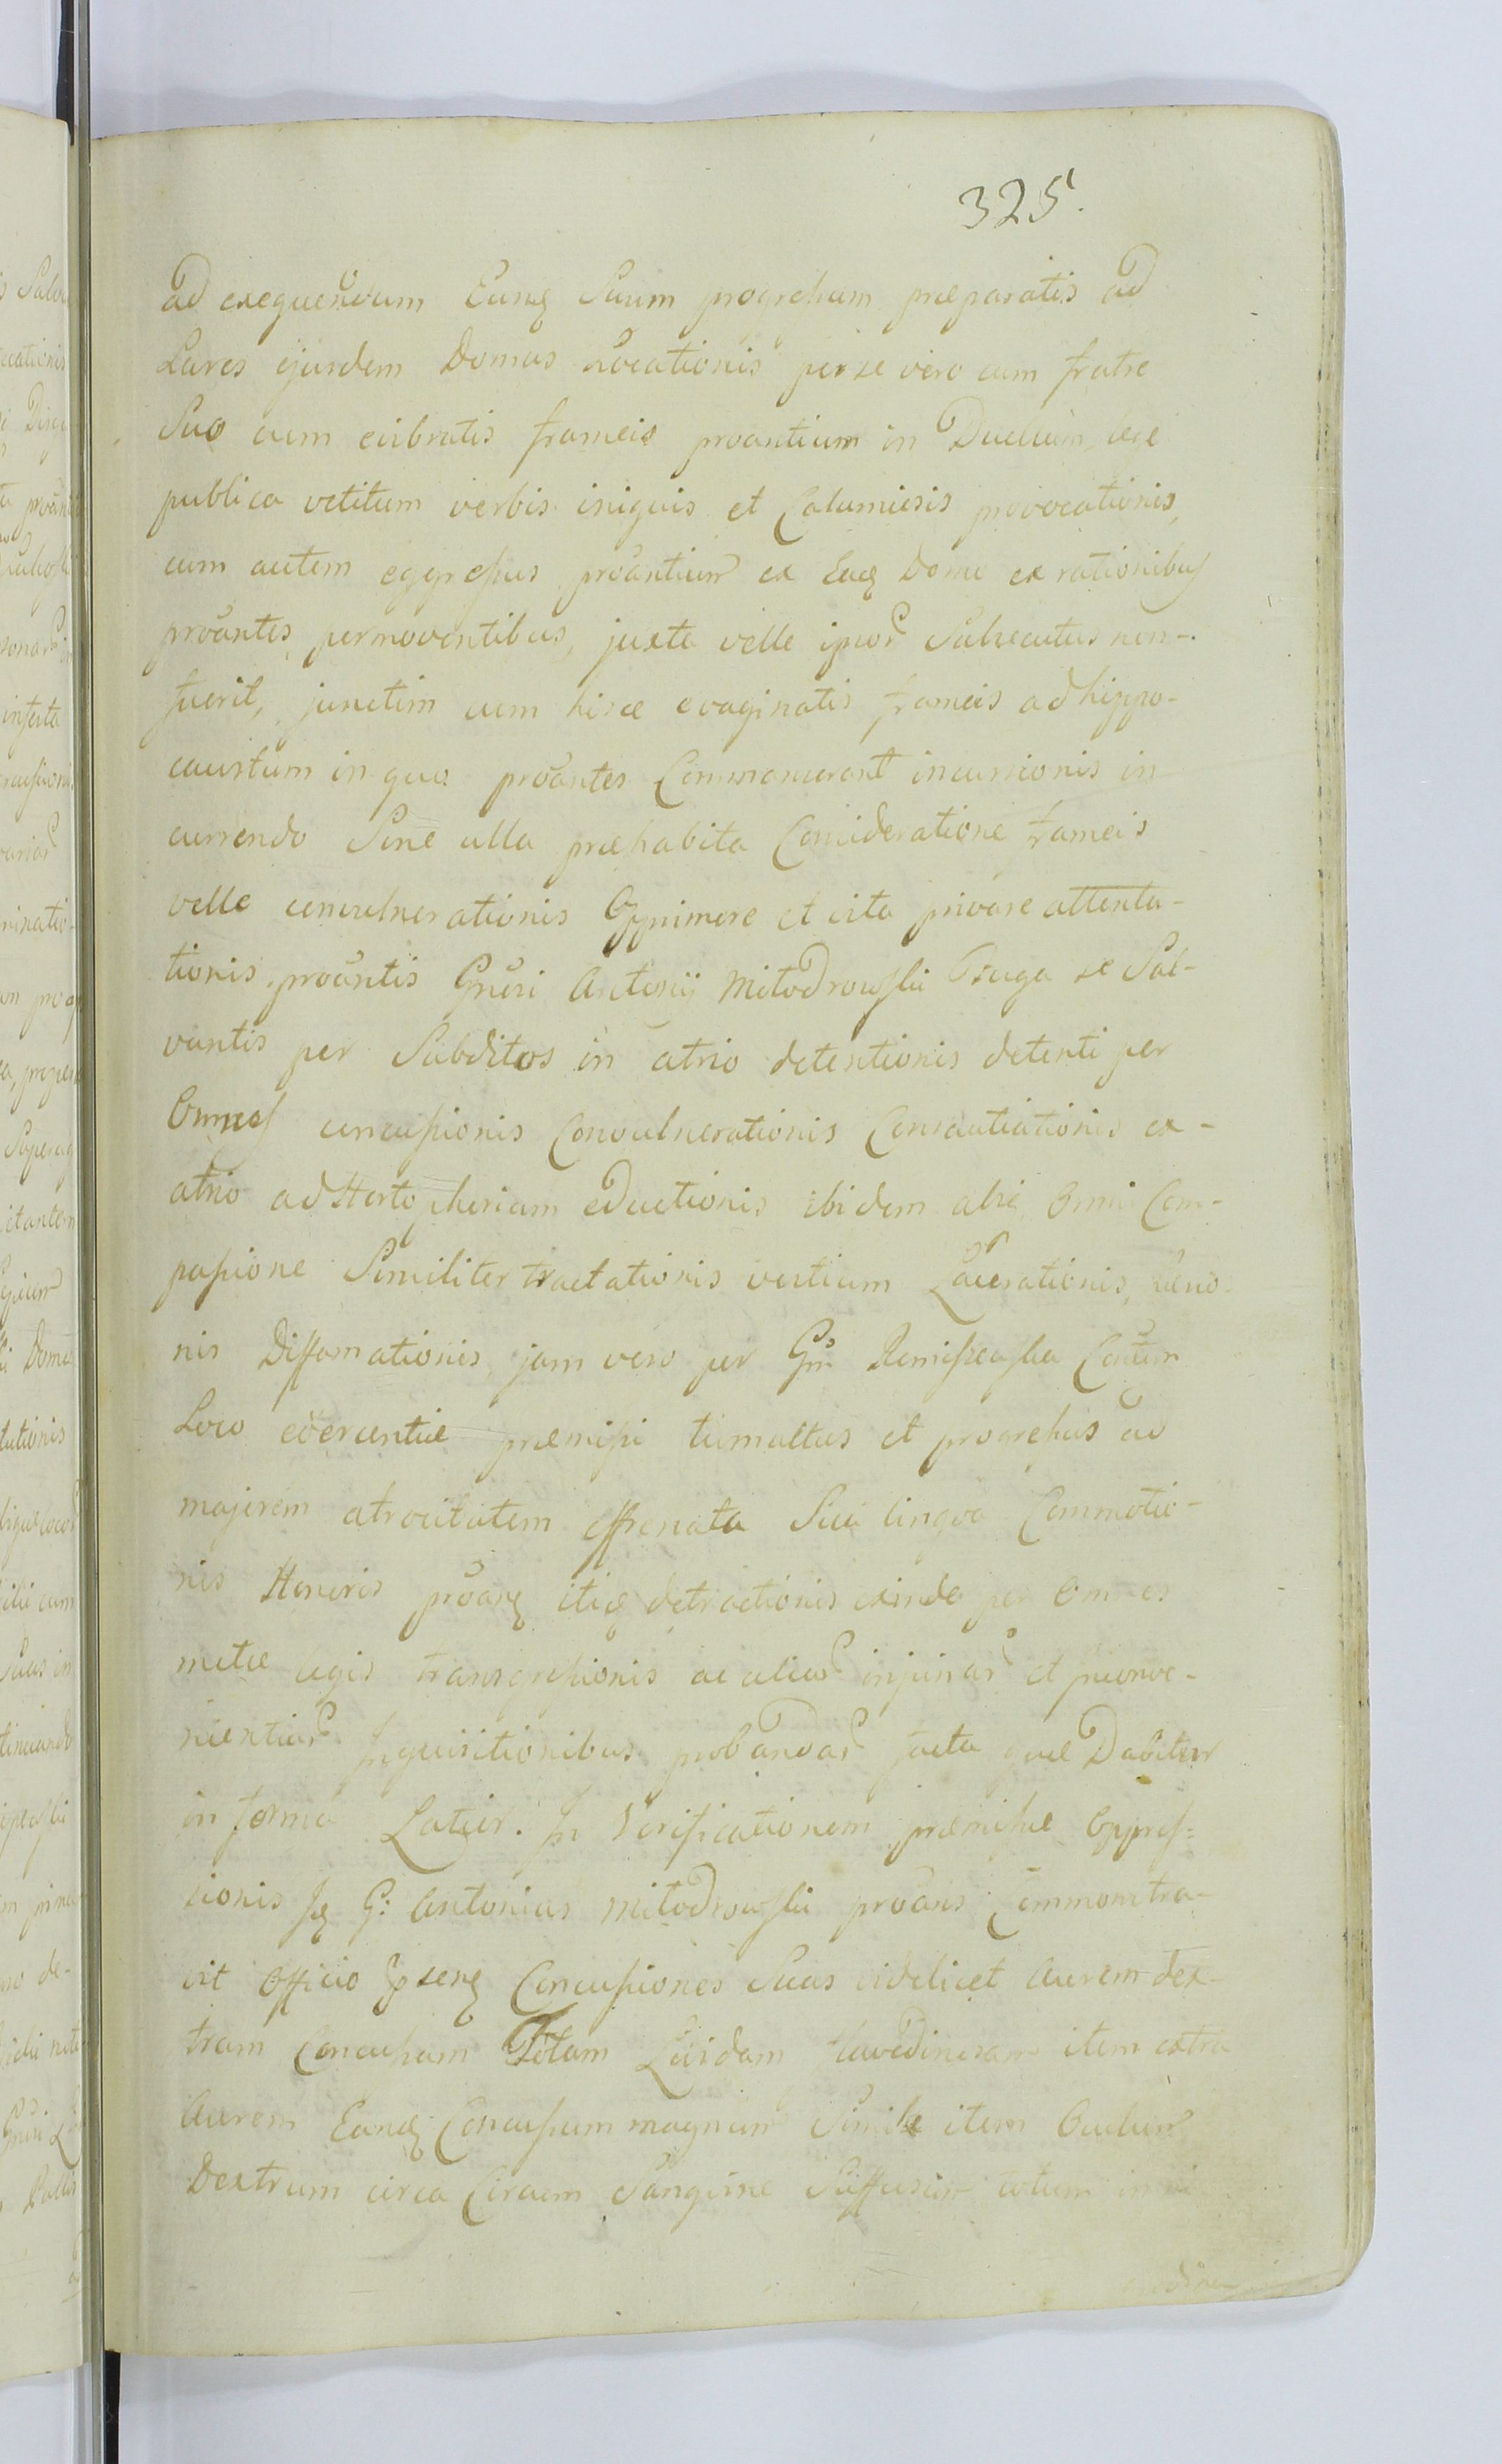 325.
ad exequendum Eunq Suum progressum præparatis ad
Lares ejusdem Domus Locationis per se vero cum fratre
Suo cum evibratis frameis proantium in Duellum lege
publica vetitum verbis iniquis et Calumiosis provocationis,
cum autem egressus proantium ex Eaq Domo ex rationibus
proantes permoventibus, juxta velle ipsor Subsecutus non-
fuerit, junctim cum hisce evaginatis frameis ad hippo-
caustum in quo proantes Commanserant incursionis in
currendo Sine ulla præhabita Consideratione frameis
velle convulnerationis Opprimere et vita privare attenta-
tionis, proantis Gnosi Antonij Mitodrowski fuga se Sal-
vantis per Subditos in atrio detentionis detenti per
Omnes concussionis Convulnerationis Consautiationis ex-
atrio ad Horto eductionis ibidem absq Omni Com-
passione Similiter tractationis vestium Lacerationis,
nis Diffamationis jam vero per Gm
Loco coercentiæ præmissi tumultus et progressus ad
majorem atrocitatem effrenata Sua lingva Commotio-
nis Honoris proanq itiq detractionis exinde per Omnes
metæ legis transgressionis ac alias injurias et
Inquisitionibus probandas facta quæ Dabitur
in forma Latior. In Verificationem præmissæ Oppres=
sionis Iq G: Antonius Mitodrowski proans Commonstra-
vit Officio Ipsenq Concussiones Suas videlicet Aurem dex-
tram Concussam Totam Lividam item extra
Aurem Eandq Concussum magnum Simile item Oculum
Dextrum circa Sangvine Suffusum totum in